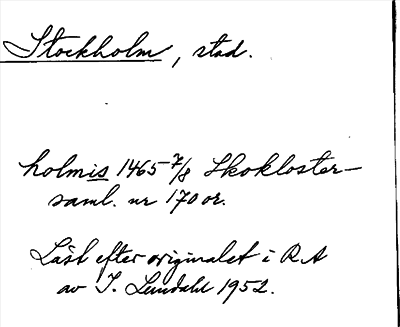 Stockholm, stad.
holmis 1465 7/8 Skokloster-
saml. nr 170 or.
Läst efter originalet i RA
av I. Lundahl 1952.